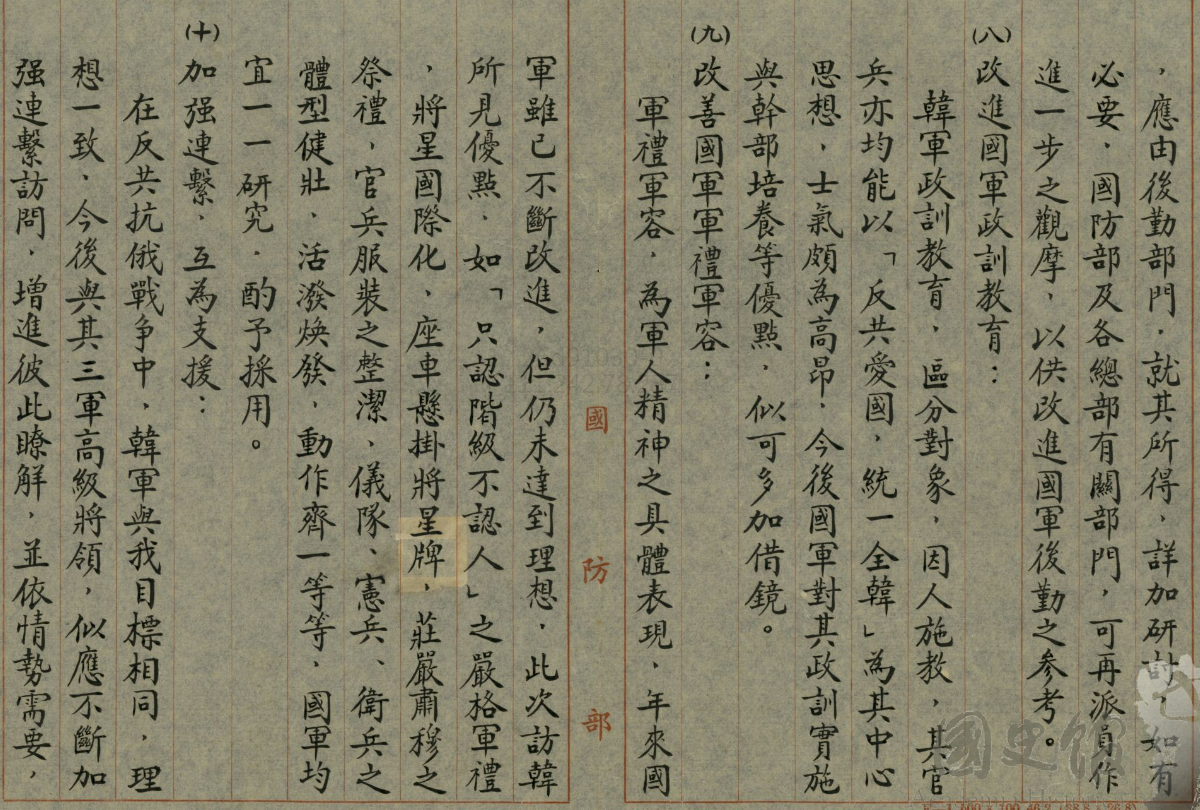 ，應由後勤部門，就其所得，詳加研討，如有
必要，國防部及各總部有關部門，可再派員作
進一步之觀摩，以供改進國軍後勤之參考。
(八)改進國軍政訓教育：
韓軍政訓教育，區分對象，因人施教，其官
兵亦均能以「反共愛國，統一全韓」為其中心
思想，士氣頗為高昂，今後國軍對其政訓實施
與幹部培養等優點，似可多加借鏡。
(九)改善國軍軍禮軍容：
軍禮軍容，為軍人精神之具體表現，年來國
國防部
軍雖已不斷改進，但仍未達到理想，此次訪韓
所見優點，如「只認階級不認人」之嚴格軍禮
，將星國際化，座車懸掛將星牌，莊嚴肅穆之
祭禮，官兵服裝之整潔，儀隊、憲兵、衛兵之
體型健壯，活潑煥發，動作齊一等等，國軍均
宜一一研究，酌予採用。
(十)加强連繫，互為支援：
在反共抗俄戰爭中，韓軍與我目標相同，理
想一致，今後與其三軍高級將領，似應不斷加
强連繫訪問，增進彼此瞭解，並依情勢需要，
國史館